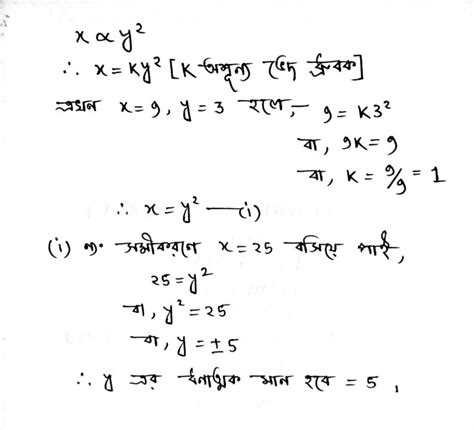 x ∝ y²
∴ x = Ky² [K অশূন্য ভেদ ধ্রুবক]
এখন x = 9, y = 3 হলে, – 9 = K3²
বা, 9K = 9
বা, K = 9/9 = 1
∴ x = y² —(i)
(i) নং সমীকরণে x = 25 বসিয়ে পাই,
25 = y²
বা, y² = 25
বা, y = ± 5
∴ y এর ধনাত্মক মান হবে = 5 ,